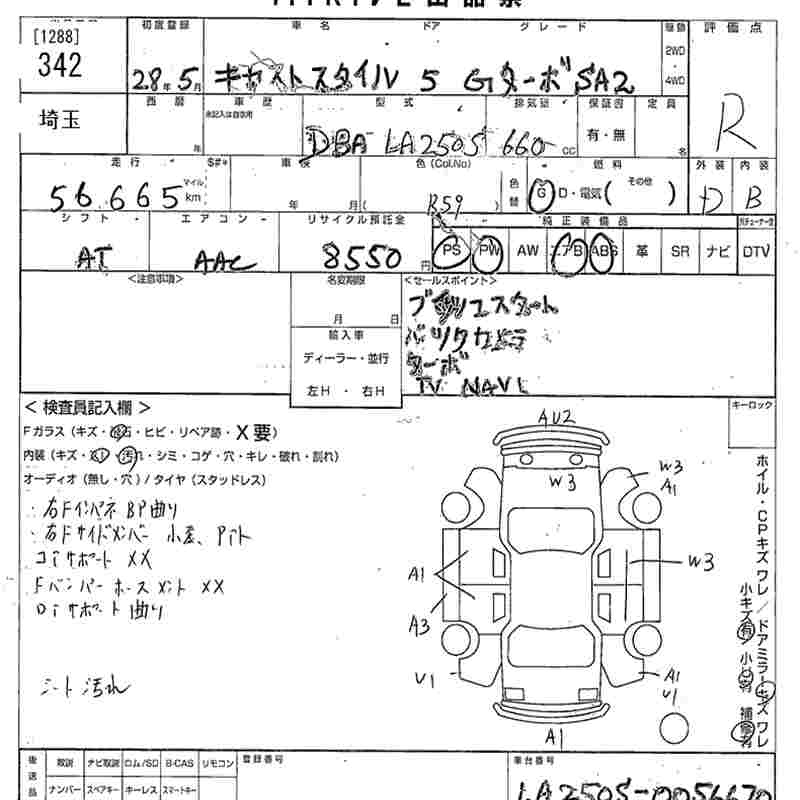 [1288]
342
初度登録
28年5月
車名 ドア グレード
キャストスタイル 5 Gターボ SA2
駆動
2WD
・
4WD
評価点
R
埼玉
西暦
年
車歴
未記入は自家用
型式
DBA LA250S
排気量
660 CC
保証書
有・無
定員
名
走行
56,665
マイル
km
$#*
車検
年 月
色(Col.No)
( R59 )
色替
燃料
G D・電気( その他 )
外装
D
内装
B
シフト
AT
エアコン
AAC
リサイクル預託金
8550円
純正装備品
PS PW AW エアB ABS 革 SR ナビ
DTV
<注意事項>
名変期限
月 日
輸入車
ディーラー・並行
左H ・ 右H
<セールスポイント>
プッシュスタート
バックカメラ
ターボ
TV NAVI
キーロック
< 検査員記入欄 >
Fガラス(キズ・飛石・ヒビ・リペア跡・X要)
内装(キズ・スレ・汚れ・シミ・コゲ・穴・キレ・破れ・割れ)
オーディオ(無し・穴)/タイヤ(スタッドレス)
・右Fインパネ BP曲り
・右Fサイドメンバー 小差、Pハト
コアサポート XX
Fバンパーホースメント XX
ロアサポート 曲り
シート汚れ
AU2
W3
W3
A1
A1
W3
A3
U1
A1
U1
A1
ホイル・CPキズワレ/ドアミラーキズワレ
小キズ有 小凹有 補修有
後送品
取説 ナビ取説 ロム/SD B-CAS リモコン
ナンバー スペアキー キーレス スマートキー
登録番号
車台番号
LA250S-0056670